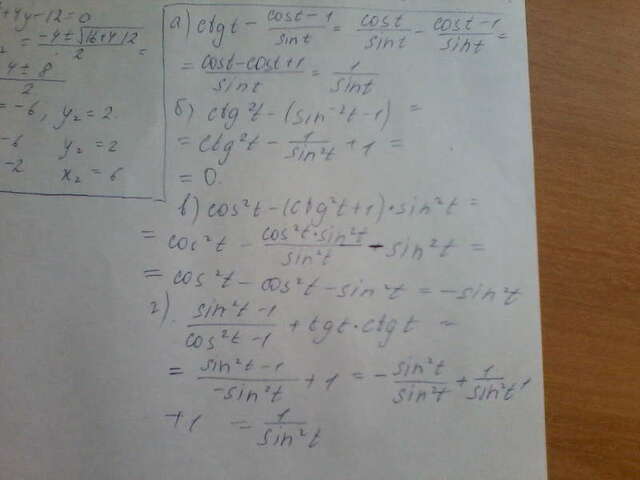 +4y-12=0
= (-4±√16+4·12)/2 =
(4±8)/2
=-6, y₂=2.
-6 y₂=2
-2 x₂=6
а) ctgt - (cost-1)/sint = cost/sint - (cost-1)/sint =
= (cost-cost+1)/sint = 1/sint
б) ctg²t-(sin⁻²t-1) =
= ctg²t - 1/sin²t + 1 =
= 0.
в) cos²t-(ctg²t+1)·sin²t =
= cos²t - (cos²t·sin²t)/sin²t - sin²t =
= cos²t - cos²t - sin²t = -sin²t
г). (sin²t-1)/(cos²t-1) + tgt·ctgt =
= (sin²t-1)/(-sin²t) + 1 = - sin²t/sin²t + 1/sin²t +
+1 = 1/sin²t